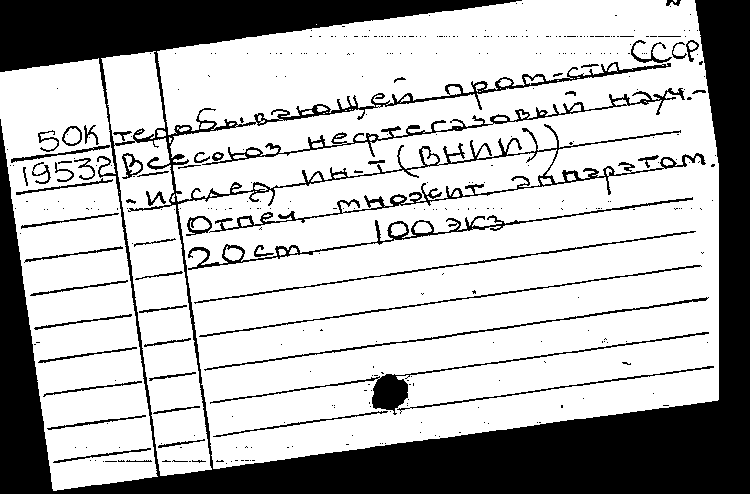 50К тедобывающей пром-сти СССР.
19532 Всесоюз. нефтегазовый науч.-
-исслед. ин-т (ВНИИ)).
Отпеч. множит. аппаратом.
20 см. 100 экз.